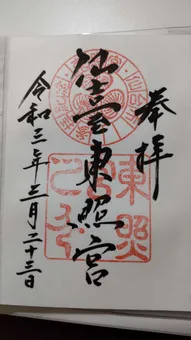 奉拝
仙臺東照宮
令和三年三月二十三日